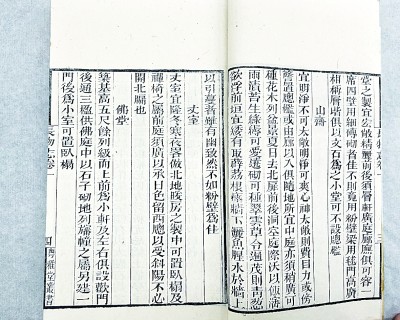 堂之製宜宏敞精麗前後須層軒廣庭廊廡俱可容一
席四壁用細磚砌者佳不則竟用粉壁梁用毬門高廣
相稱層堦俱以文石為之小堂可不設牕檻
山齋
宜明淨不可太敞明淨可爽心神太敞則費目力或傍
簷置牕檻或由廊以入俱隨地所宜中庭亦須稍廣可
種花木列盆景夏日去北扉前後洞空庭際沃以飯瀋
雨漬苔生綠褥可愛遶砌可種翠雲草令遍茂則青葱
欲浮前垣宜矮有取薜荔根瘞牆下灑魚腥水於牆上
以引蔓者雖有幽致然不如粉壁為佳
丈室
丈室宜隆冬寒夜畧倣北地暖房之製中可置臥榻及
禪椅之屬前庭須廣以承日色留西牕以受斜陽不必
開北牖也
佛堂
築基高五尺餘列級而上前為小軒及左右俱設歡門
後通三楹供佛庭中以石子砌地列旛幢之屬另建一
門後為小室可置臥榻
長物志卷一
四